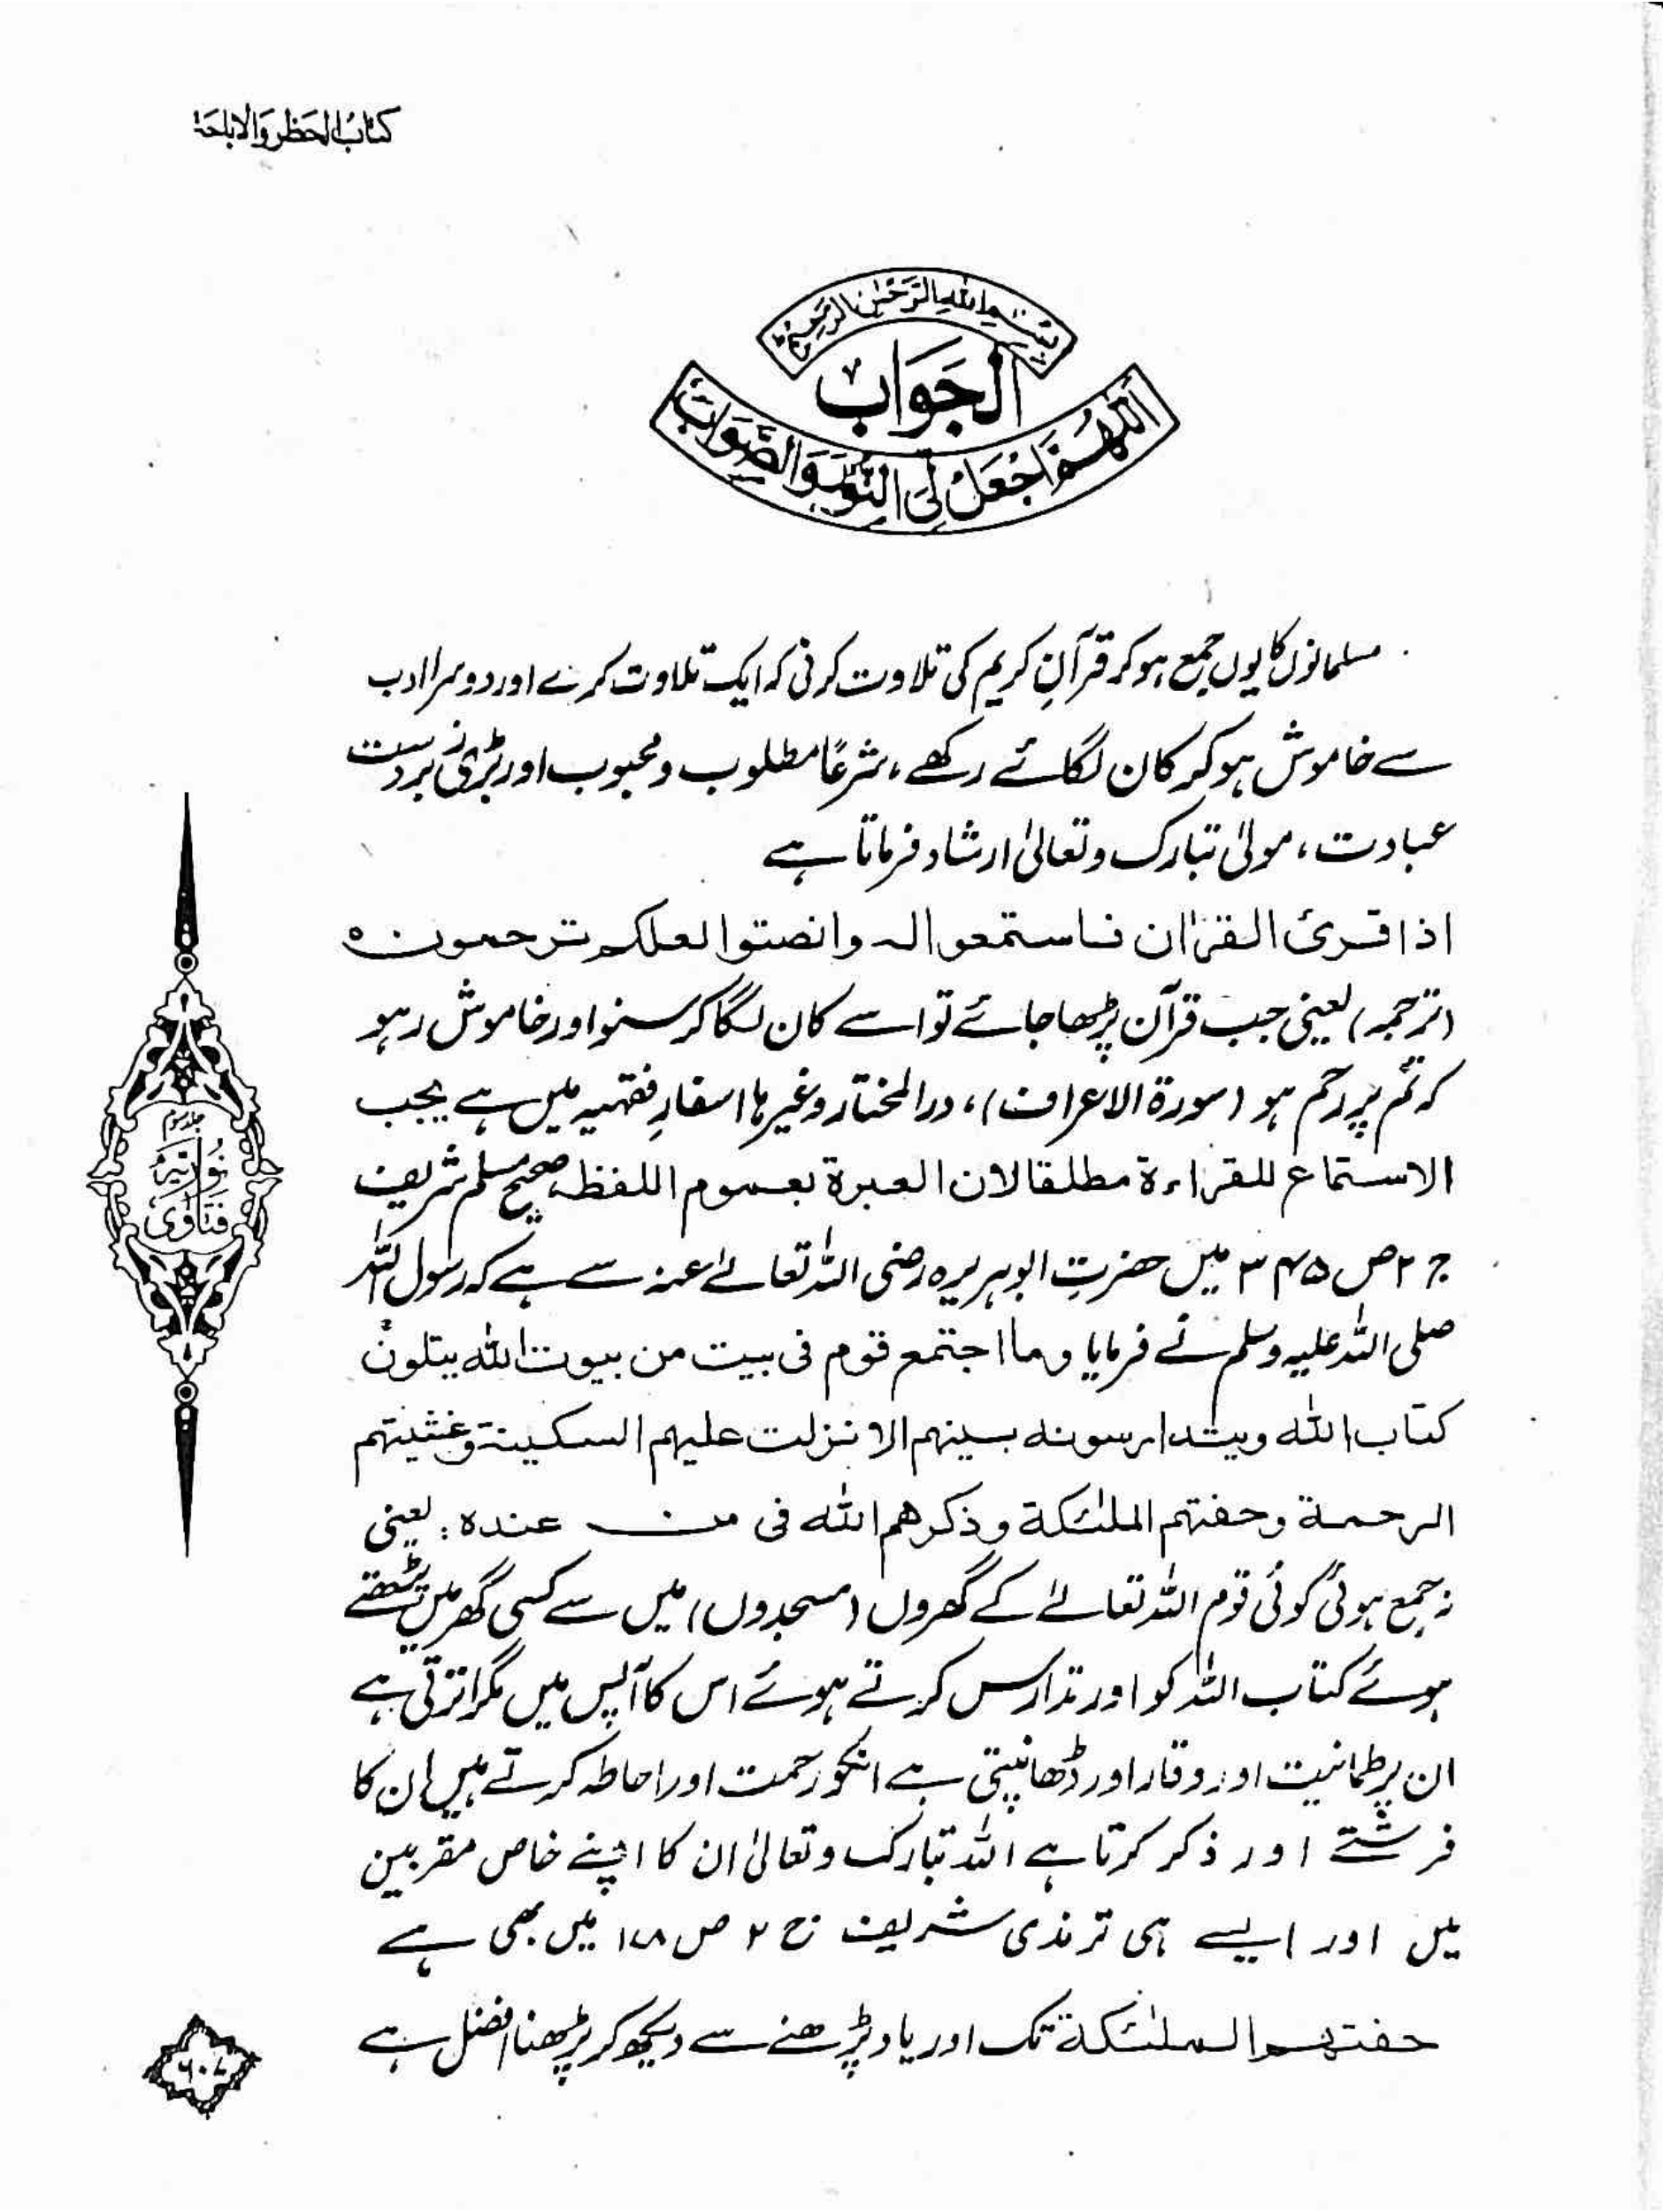 كتابُ الحَظرِ وَالاباحَة
بِسْمِ اللهِ الرَّحْمٰنِ الرَّحِيْمِ
الجَوَاب
اَللّٰهُمَّ اجْعَلْ لِّیَ النُّوْرَ وَالصَّوَابَ
مسلمانوں کا یوں جمع ہو کر قرآنِ کریم کی تلاوت کرنی کہ ایک تلاوت کرے اور دوسرا ادب
سے خاموش ہو کر کان لگائے رکھے، شرعًا مطلوب و محبوب اور بڑی زبردست
عبادت، مولیٰ تبارک و تعالیٰ ارشاد فرماتا ہے
اذا قرئ القراٰن فاستمعوا لہ وانصتوا لعلکم ترحمون ہ
(ترجمہ) یعنی جب قرآن پڑھا جائے تو اسے کان لگا کر سنو اور خاموش رہو
کہ تم پر رحم ہو (سورۃ الاعراف)، در المختار وغیرہا اسفارِ فقہیہ میں ہے یجب
الاستماع للقراءۃ مطلقا لان العبرۃ بعموم اللفظ، صحیح مسلم شریف
ج ۲ ص ۳۴۵ میں حضرتِ ابوہریرہ رضی اللہ تعالےٰ عنہ سے ہے کہ رسول اللہ
صلی اللہ علیہ وسلم نے فرمایا وما اجتمع قوم فی بیت من بیوت اللہ یتلون
کتاب اللہ ویتدارسونہ بینہم الا نزلت علیہم السکینۃ وغشیتہم
الرحمۃ وحفتہم الملٰئکۃ وذکرھم اللہ فی من عندہ: یعنی
نہ جمع ہوئی کوئی قوم اللہ تعالےٰ کے گھروں (مسجدوں) میں سے کسی گھر میں پڑھتے
ہوئے کتاب اللہ کو اور تدارس کرتے ہوئے اس کا آپس میں مگر اترتی ہے
ان پر طمانیت اور وقار اور ڈھانپتی ہے انکو رحمت اور احاطہ کرتے ہیں ان کا
فرشتے اور ذکر کرتا ہے اللہ تبارک و تعالیٰ ان کا اپنے خاص مقربین
میں اور ایسے ہی ترمذی شریف ج ۲ ص ۱۷۸ میں بھی ہے
حفتھم الملٰئکۃ تک اور یاد پڑھنے سے دیکھ کر پڑھنا افضل ہے
فتاویٰ
نوریہ
۶۰۷